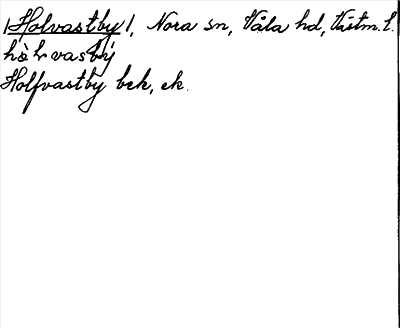 |Holvastby|, Nora sn, Våla hd, Västm. l.
hòlvasbý
Holfvastby bek, ek.